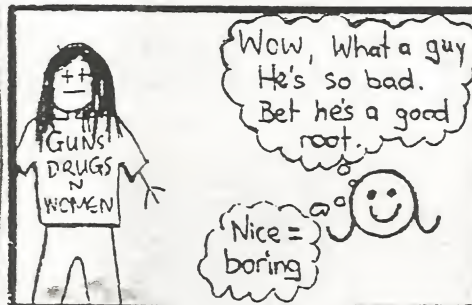 GUNS
DRUGS
N
WOMEN
Wow, What a guy
He's so bad.
Bet he's a good
root.
Nice =
boring